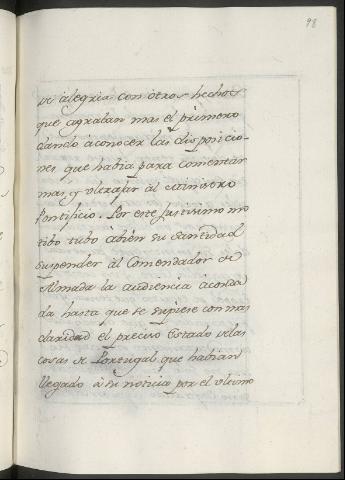 98
de alegria con otros hechos
que agraban mas el primero
dando à conocer las disposicio-
nes que habia para comentar
mas, y ultrajar al Ministro
Pontificio. Por este justisimo mo
tibo tubo abien su Santidad
suspender àl Comendador de
Almada la audiencia acorda
da hasta que se supiese con mas
claridad el preciso Estado delas
cosas de Portugal que habian
llegado à su noticia por el ultimo